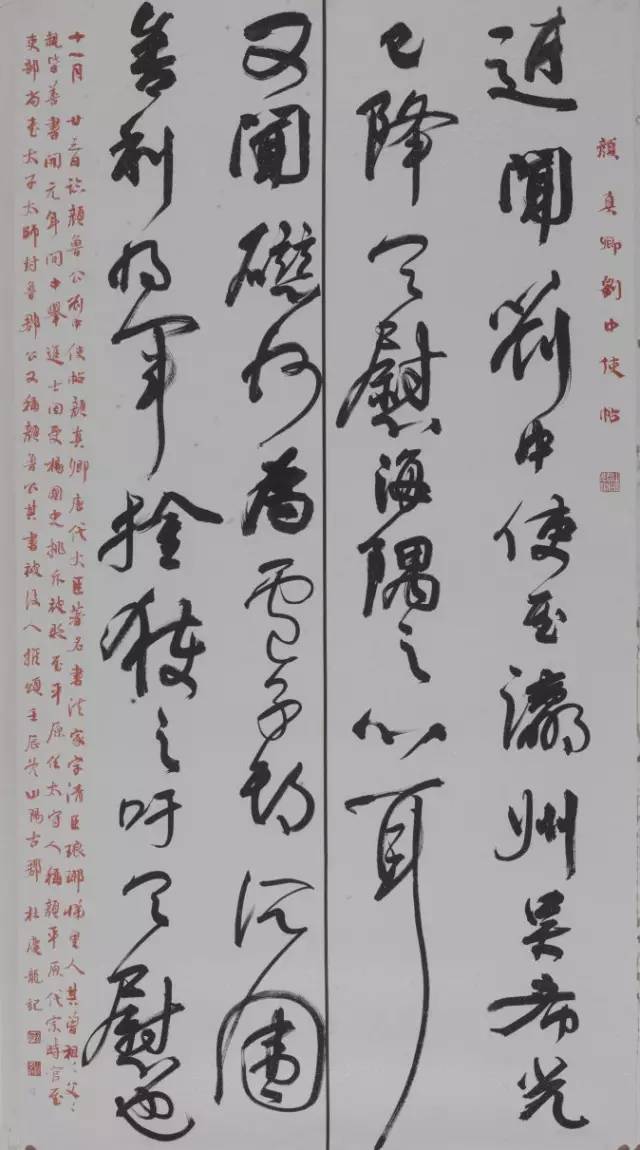 顏真卿劉中使帖
近聞劉中使至瀛州吳希光
已降足慰海隅之心耳
又聞礠州為盧子期所圍
舍利將軍擒獲之吁足慰也
十一月廿三日臨顏魯公劉中使帖顏真卿唐代大臣著名書法家字清臣琅琊人其曾祖父
親皆善書開元年間中舉進士因受楊國忠排斥被貶至平原任太守人稱顏平原代宗時官至
吏部尚書太子太師封魯郡公又稱顏魯公其書被後人推頌壬辰於山陽古郡杜慶龍記